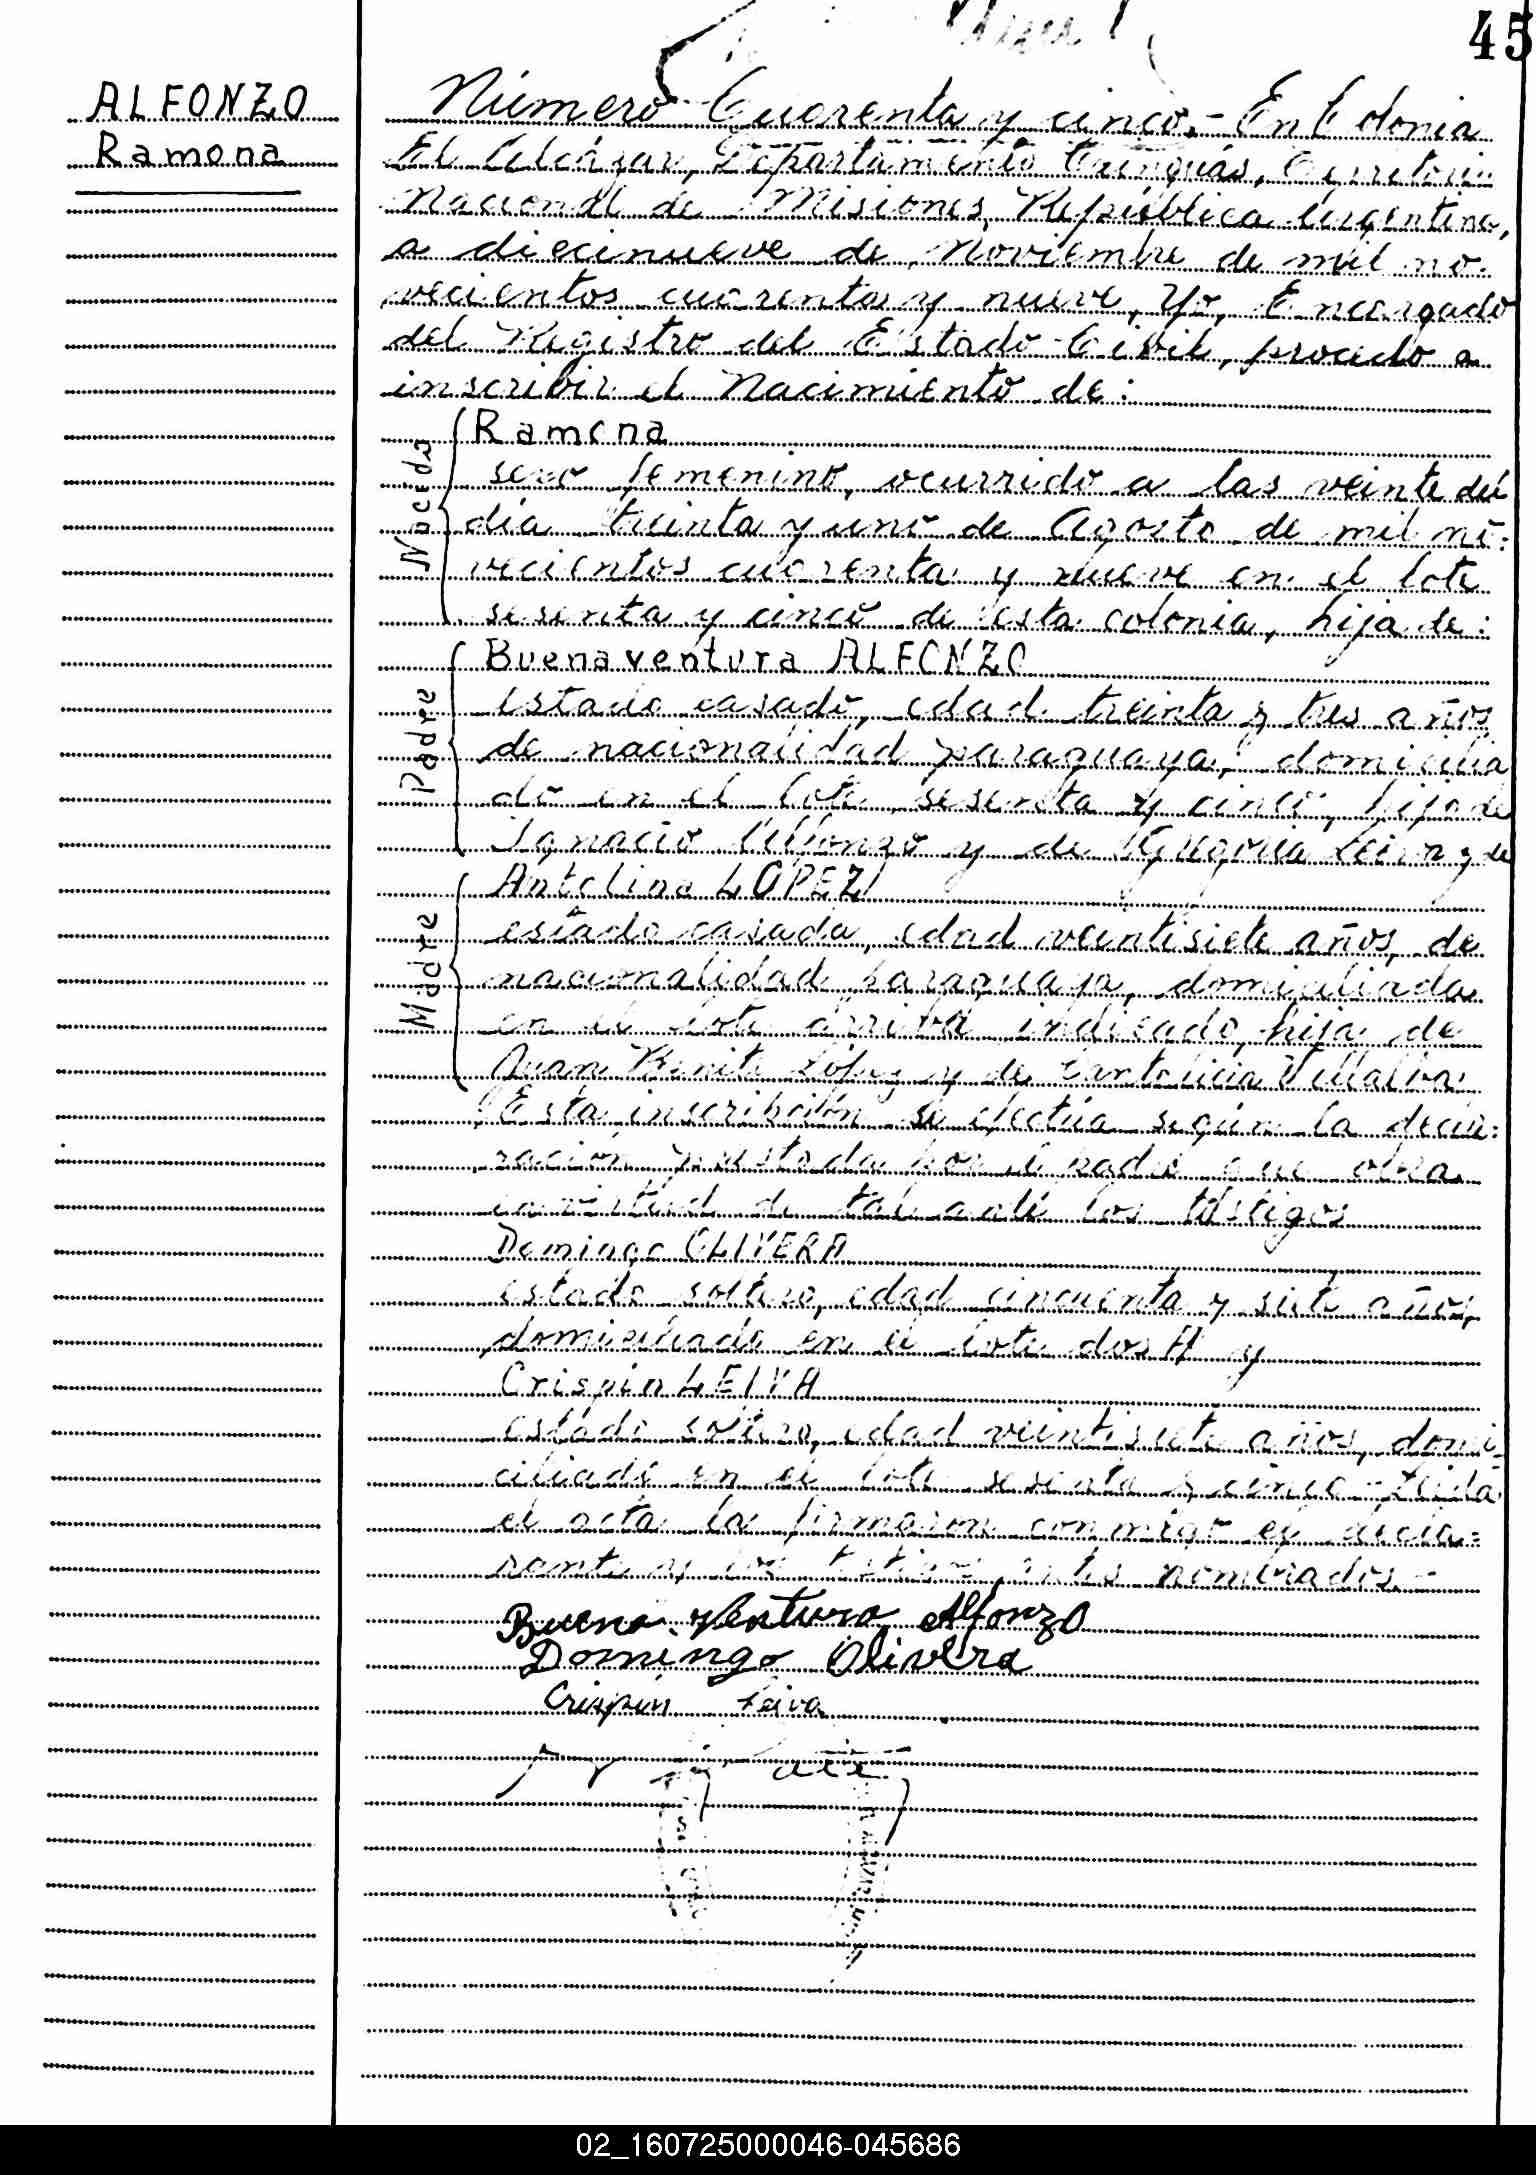 45
ALFONZO
Ramona
Número Cuarenta y cinco.- En Colonia
El Alcázar, Departamento Cainguás, Territorio
Nacional de Misiones, República Argentina,
a diecinueve de Noviembre de mil no-
vecientos cuarenta y nueve, Yo, Encargado
del Registro del Estado Civil, procedo a
inscribir el Nacimiento de:
Nacido
Ramona
sexo femenino, ocurrido a las veinte del
día treinta y uno de Agosto de mil no-
vecientos cuarenta y nueve en el lote
sesenta y cinco de esta colonia, hija de:
Padre
Buenaventura ALFONZO
estado casado, edad treinta y tres años,
de nacionalidad paraguaya, domicilia
do en el lote sesenta y cinco, hijo de
Ignacio Alfonzo y de Gregoria Leiva y de
Madre
Antolina LOPEZ
estado casada, edad veintisiete años, de
nacionalidad paraguaya, domiciliada
en el lote arriba indicado, hija de
Juan Benito López y de Villalba.
Esta inscripción se efectúa según la decla-
ración prestada por el padre que obra
en virtud de tal ante los testigos
Domingo OLIVERA
estado soltero, edad cincuenta y siete años,
domiciliado en el lote dos A y
Crispín LEIVA
estado soltero, edad veintisiete años, domi-
ciliado en el lote sesenta y cinco - Leída
el acta la firmaron conmigo el decla-
rante y los testigos antes nombrados.-
Buenaventura Alfonzo
Domingo Olivera
Crispín Leiva
02_160725000046-045686